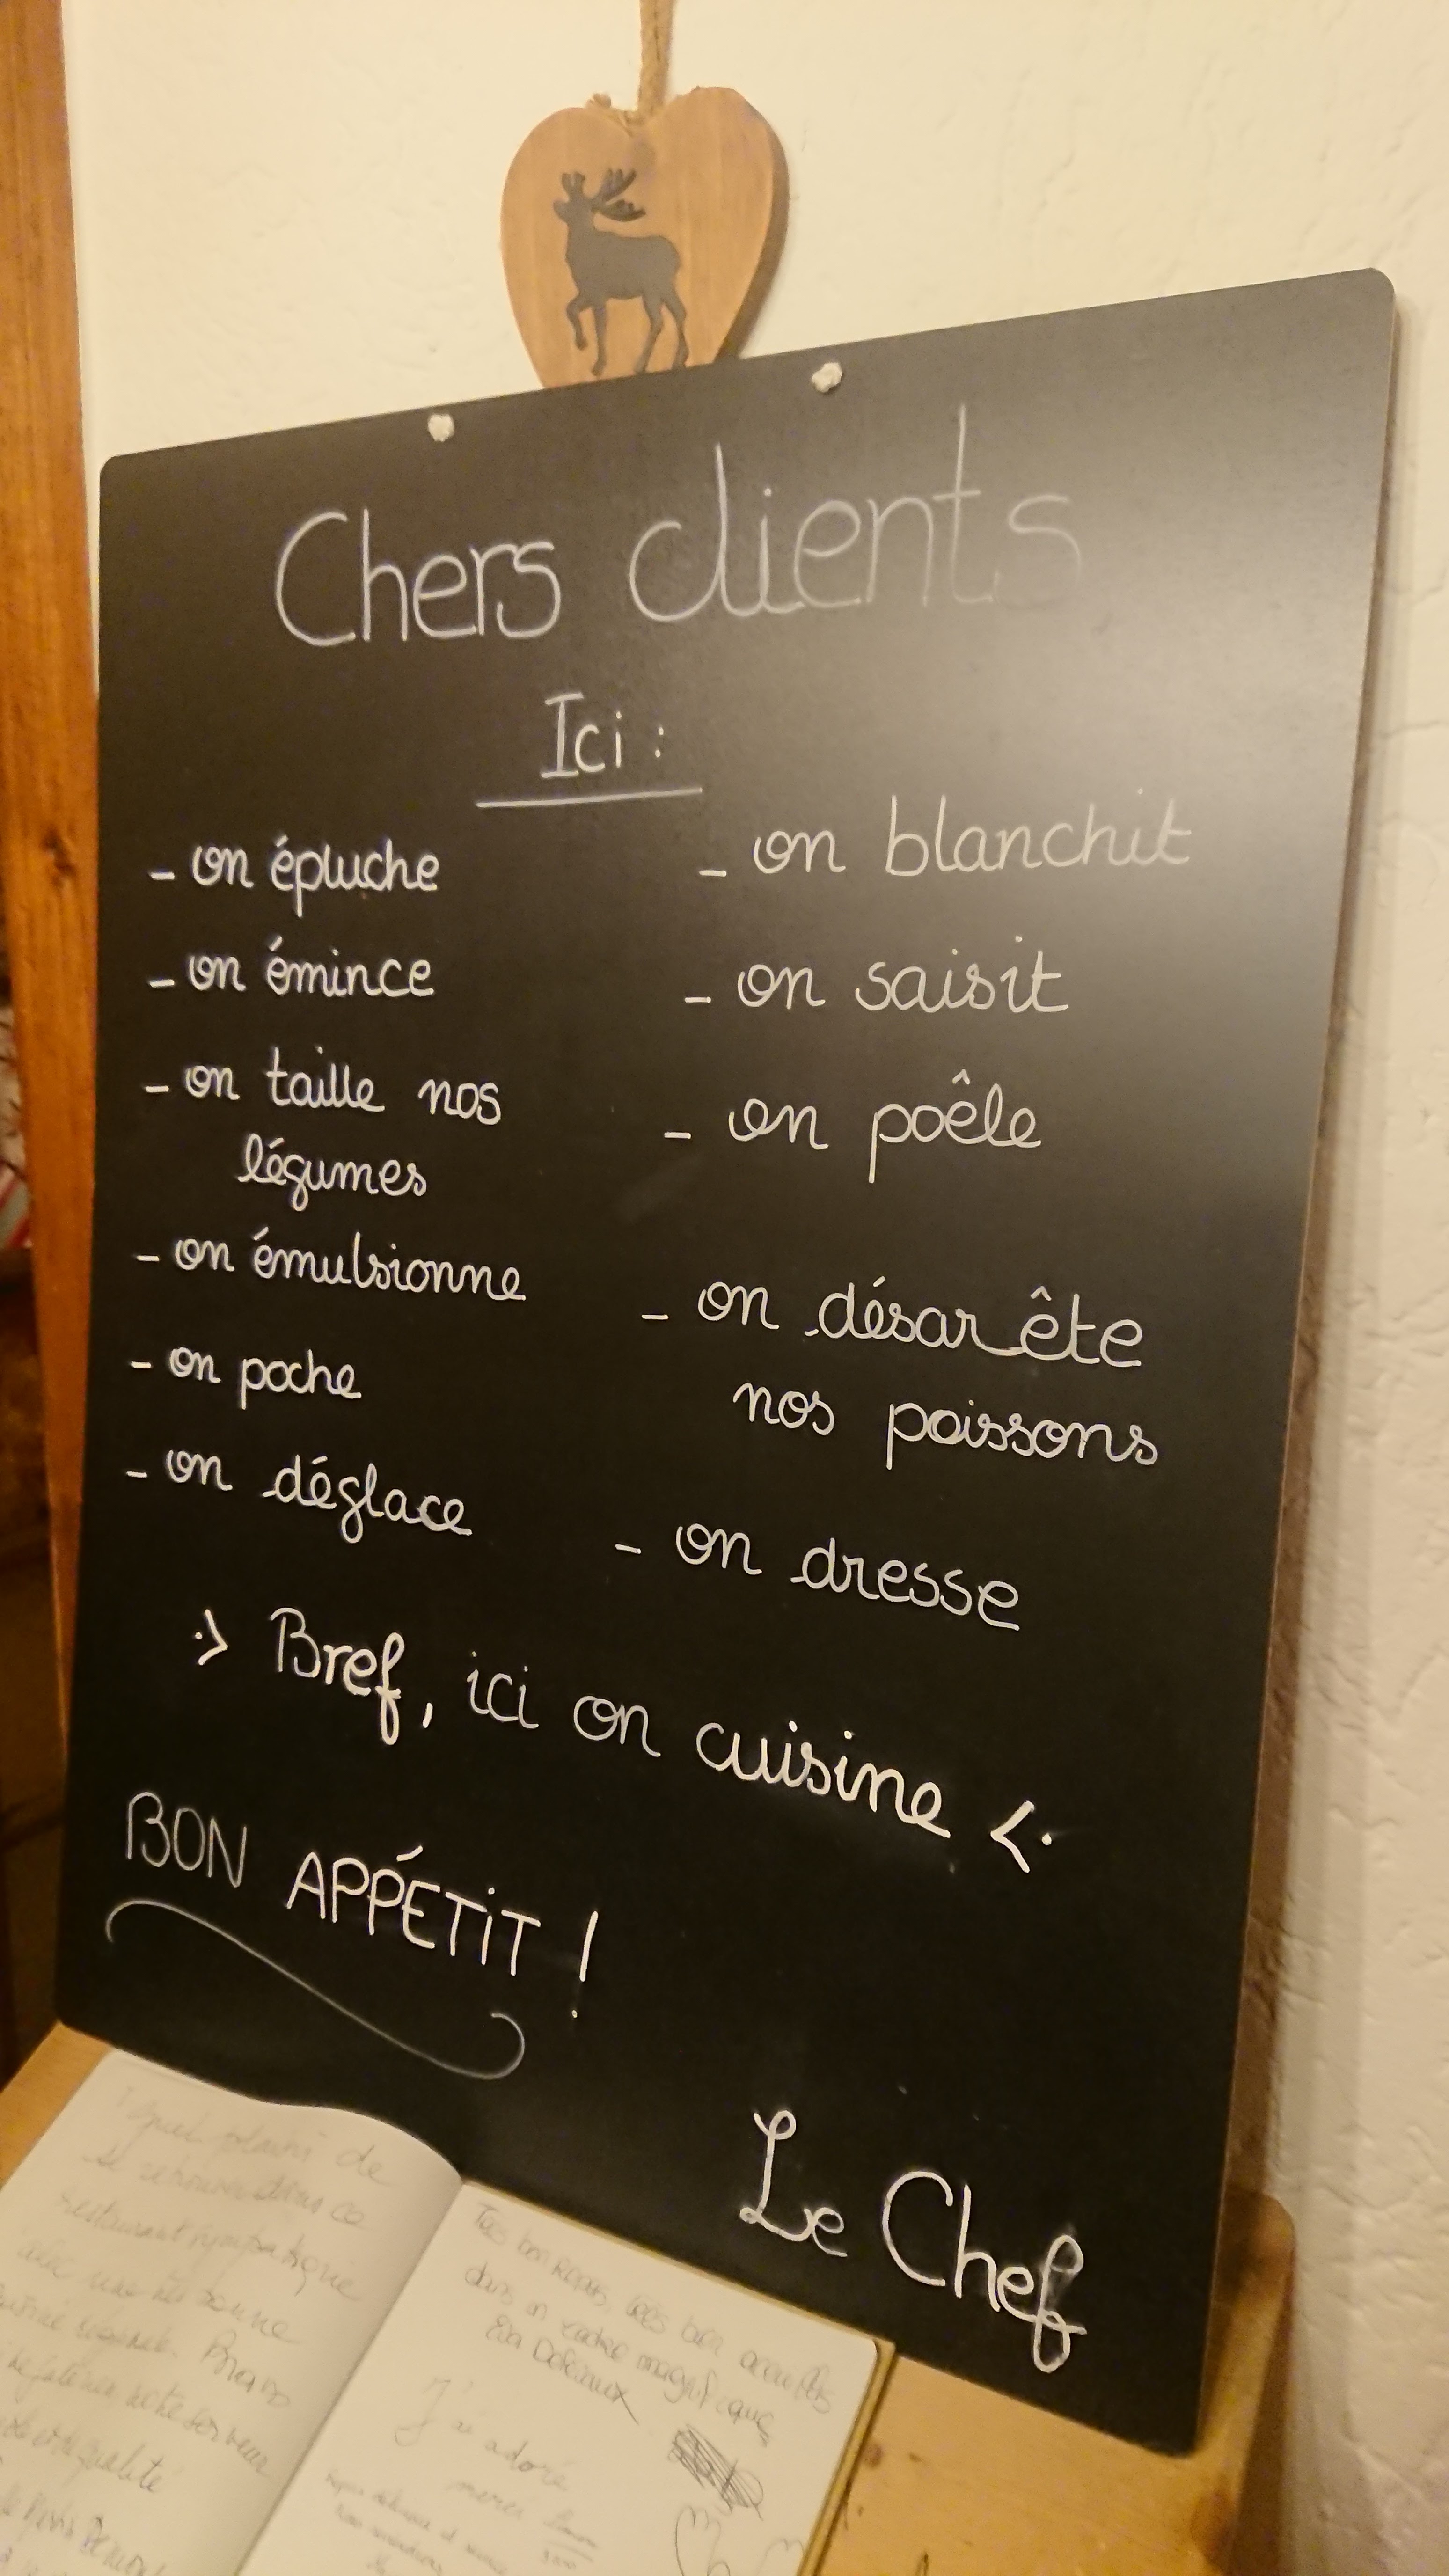 Chers clients
Ici :
- on épluche
- on émince
- on taille nos
légumes
- on émulsionne
- on poche
- on déglace
- on blanchit
- on saisit
- on poêle
- on désarête
nos poissons
- on dresse
Bref, ici on cuisine
BON APPÉTIT !
Le Chef
de
se retrouver dans ce
restaurant sympathique
avec une très bonne
Bravo
qualité
Très bon repas, très bien accueillis
dans un cadre magnifique
J'ai adoré
merci